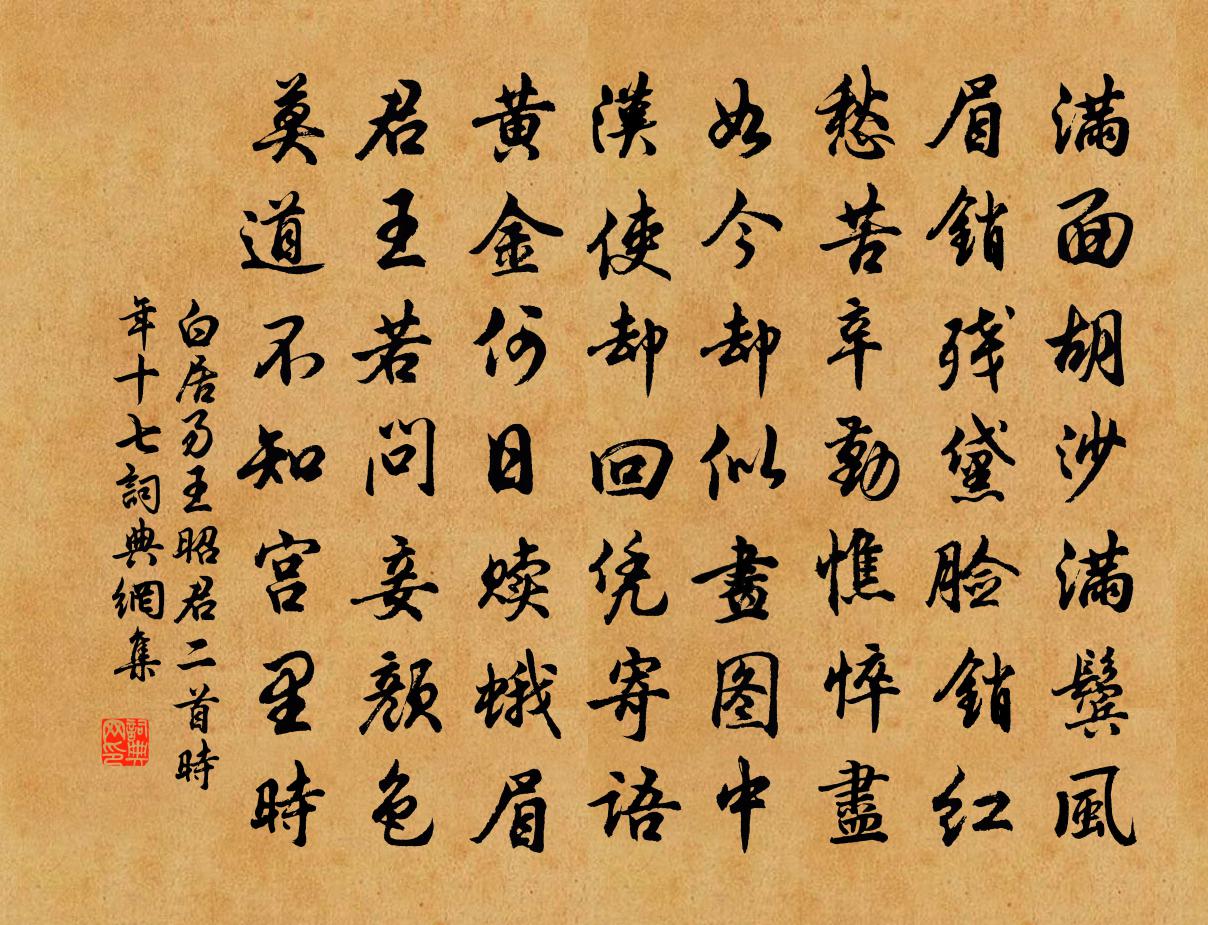 满面胡沙满鬓風
眉銷残黛脸銷红
愁苦辛勤憔悴盡
如今却似畫图中
漢使却回凭寄语
黄金何日赎蛾眉
君王若问妾颜色
莫道不知宫里時
白居易王昭君二首時
年十七詞典網集
詞典网印